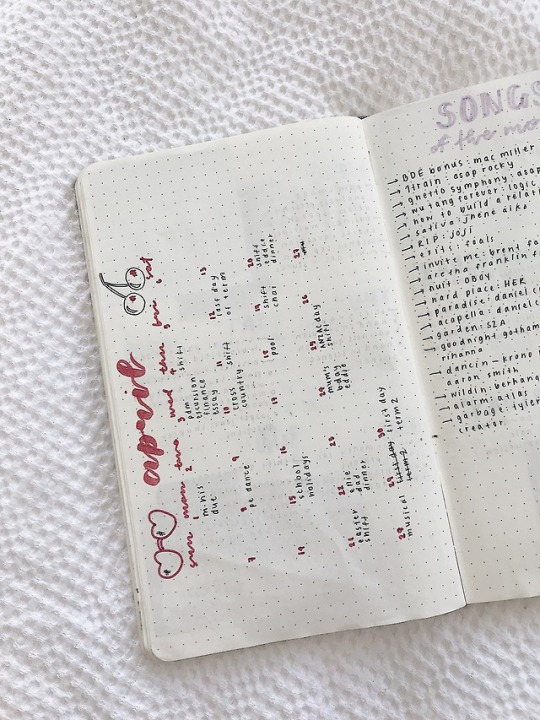 april
sun mon tue wed thu fri sat
1
due
2
3
pdm
excursion
finance
essay
4
shift
5
6
7
8
pe dance
9
10
cross
country
11
shift
12
last day
of term
13
14
15
school
holidays
16
17
18
pool
19
shift
chai
20
shift
eddie
dinner
21
easter
shift
22
ellie
dad
dinner
23
24
mum's
bday
eddie
25
ANZAC day
shift
26
27
28
musical
29
first day
term 2
30
first day
term 2
SONGS
of the
BDE bonus: mac miller
1train: asap rocky
ghetto symphony: asap
wu tang forever: logic
how to build a
sativa: jhené aiko
R.I.P: joji
exits: foals
invite me: brent
aretha franklin
nuit: OBOY
hard place: HER
paradise: daniel
acapella: daniel
garden: SZA
goodnight gotham
rihanna
dancin - krono
aaron smith
wildin: berhana
alarm: atlas
garbage: tyler
creator